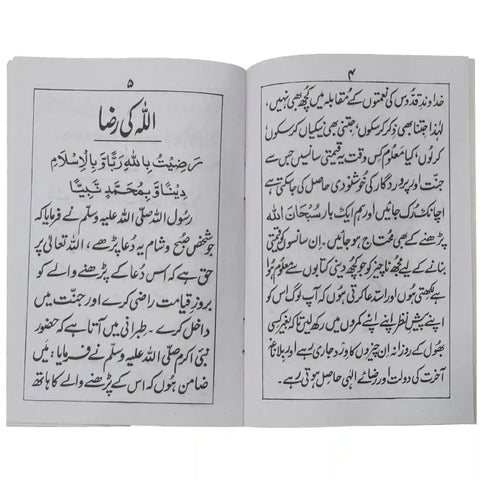 ۴
خداوند قدّوس کی نعمتوں کے مقابلہ میں کچھ بھی نہیں،
لہٰذا جتنا بھی ذکر کر سکوں، جتنی بھی نیکیاں کر سکوں
کر لوں، کیا معلوم کس وقت یہ قیمتی سانسیں جس سے
جنت اور پروردگار کی خوشنودی حاصل کی جاتی ہے
اچانک رُک جائیں اور ہم ایک بار سُبْحَانَ اللہ
پڑھنے کے بھی محتاج ہو جائیں۔ اِن سانسوں کو قیمتی
بنانے کے لیے مجھ ناچیز کو جو کچھ دینی کتابوں سے معلوم ہوا
ہے لکھتی ہوں اور استدعا کرتی ہوں کہ آپ لوگ اس کو
اپنے پیشِ نظر اپنے اپنے کمروں میں رکھ لیں تاکہ بغیر کسی
بھول کے روزانہ ان چیزوں کا وِرد جاری رہے اور بلا ناغہ
آخرت کی دولت اور رضائے الٰہی حاصل ہوتی رہے۔
۵
اللہ کی رضا
رَضِیْتُ بِاللہِ رَبًّا وَّ بِالْاِسْلَامِ
دِیْنًا وَّ بِمُحَمَّدٍ نَّبِیًّا
رسول اللہ صلی اللہ علیہ وسلم نے فرمایا کہ
جو شخص صبح و شام یہ دُعا پڑھے، اللہ تعالیٰ پر
حق ہے کہ اس دُعا کے پڑھنے والے کو
بروزِ قیامت راضی کرے اور جنت میں
داخل کرے۔ طبرانی میں آتا ہے کہ حضور
نبی اکرم صلی اللہ علیہ وسلم نے فرمایا: میں
ضامن ہوں کہ اس کے پڑھنے والے کا ہاتھ